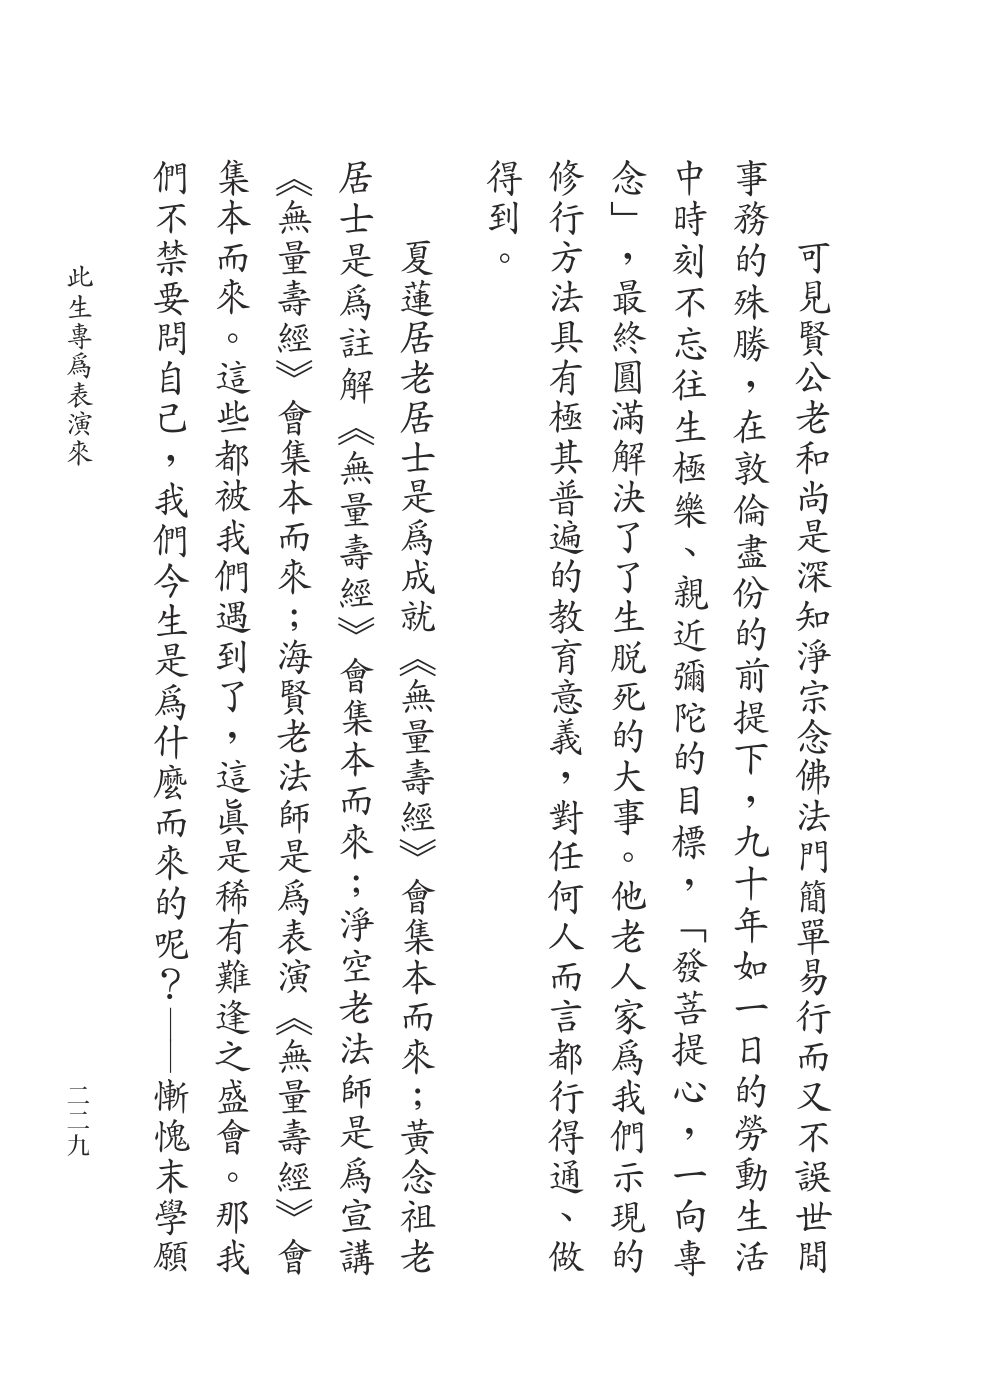 可見賢公老和尚是深知淨宗念佛法門簡單易行而又不誤世間
事務的殊勝，在敦倫盡份的前提下，九十年如一日的勞動生活
中時刻不忘往生極樂、親近彌陀的目標，「發菩提心，一向專
念」，最終圓滿解決了了生脱死的大事。他老人家爲我們示現的
修行方法具有極其普遍的教育意義，對任何人而言都行得通、做
得到。
夏蓮居老居士是爲成就《無量壽經》會集本而來；黃念祖老
居士是爲註解《無量壽經》會集本而來；淨空老法師是爲宣講
《無量壽經》會集本而來；海賢老法師是爲表演《無量壽經》會
集本而來。這些都被我們遇到了，這眞是稀有難逢之盛會。那我
們不禁要問自己，我們今生是爲什麼而來的呢？——慚愧末學願
此生專爲表演來
二二九